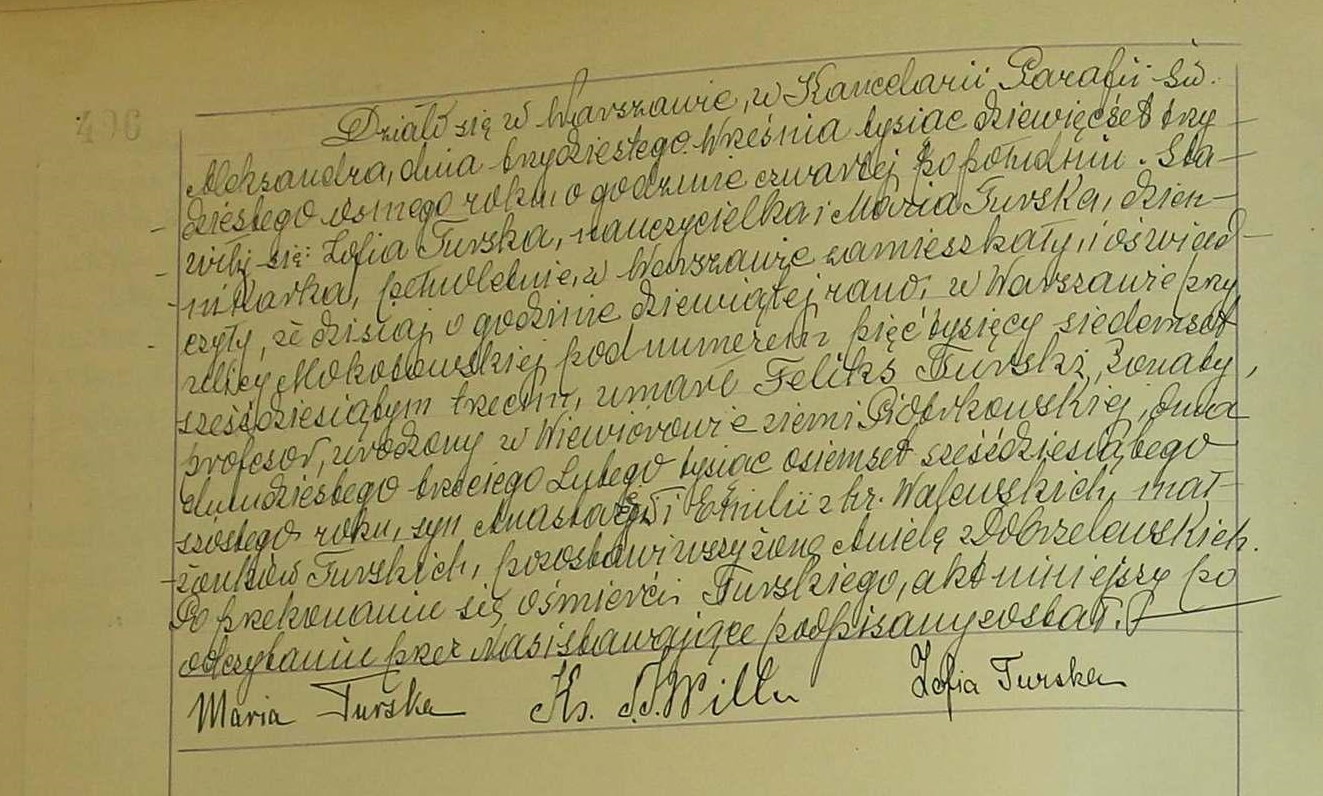 406
Działo się w Warszawie, w Kancelarii Parafii św.
Aleksandra, dnia trzydziestego Września tysiąc dziewięćset trzy
dziestego ósmego roku, o godzinie czwartej po południu. Sta-
wiły się: Zofia Turska, nauczycielka i Maria Turska, dzien-
nikarka, pełnoletnie, w Warszawie zamieszkały, i oświad-
czyły, że dzisiaj, o godzinie dziewiątej rano, w Warszawie przy
ulicy Mokotowskiej pod numerem pięć tysięcy siedemset
sześćdziesiątym trzecim, umarł Feliks Turski, żonaty,
profesor, urodzony w Wiewiórowie ziemi Piotrkowskiej, dnia
dwudziestego trzeciego Lutego tysiąc osiemset sześćdziesiątego
szóstego roku, syn Anastazego i Emilii z hr. Walewskich, mał-
żonków Turskich, pozostawiwszy żonę Anielę z Dobrzelewskich.
Po przekonaniu się o śmierci Turskiego, akt niniejszy po
odczytaniu przez Nas i stawające podpisany został.
Maria Turska Ks. Zofia Turska